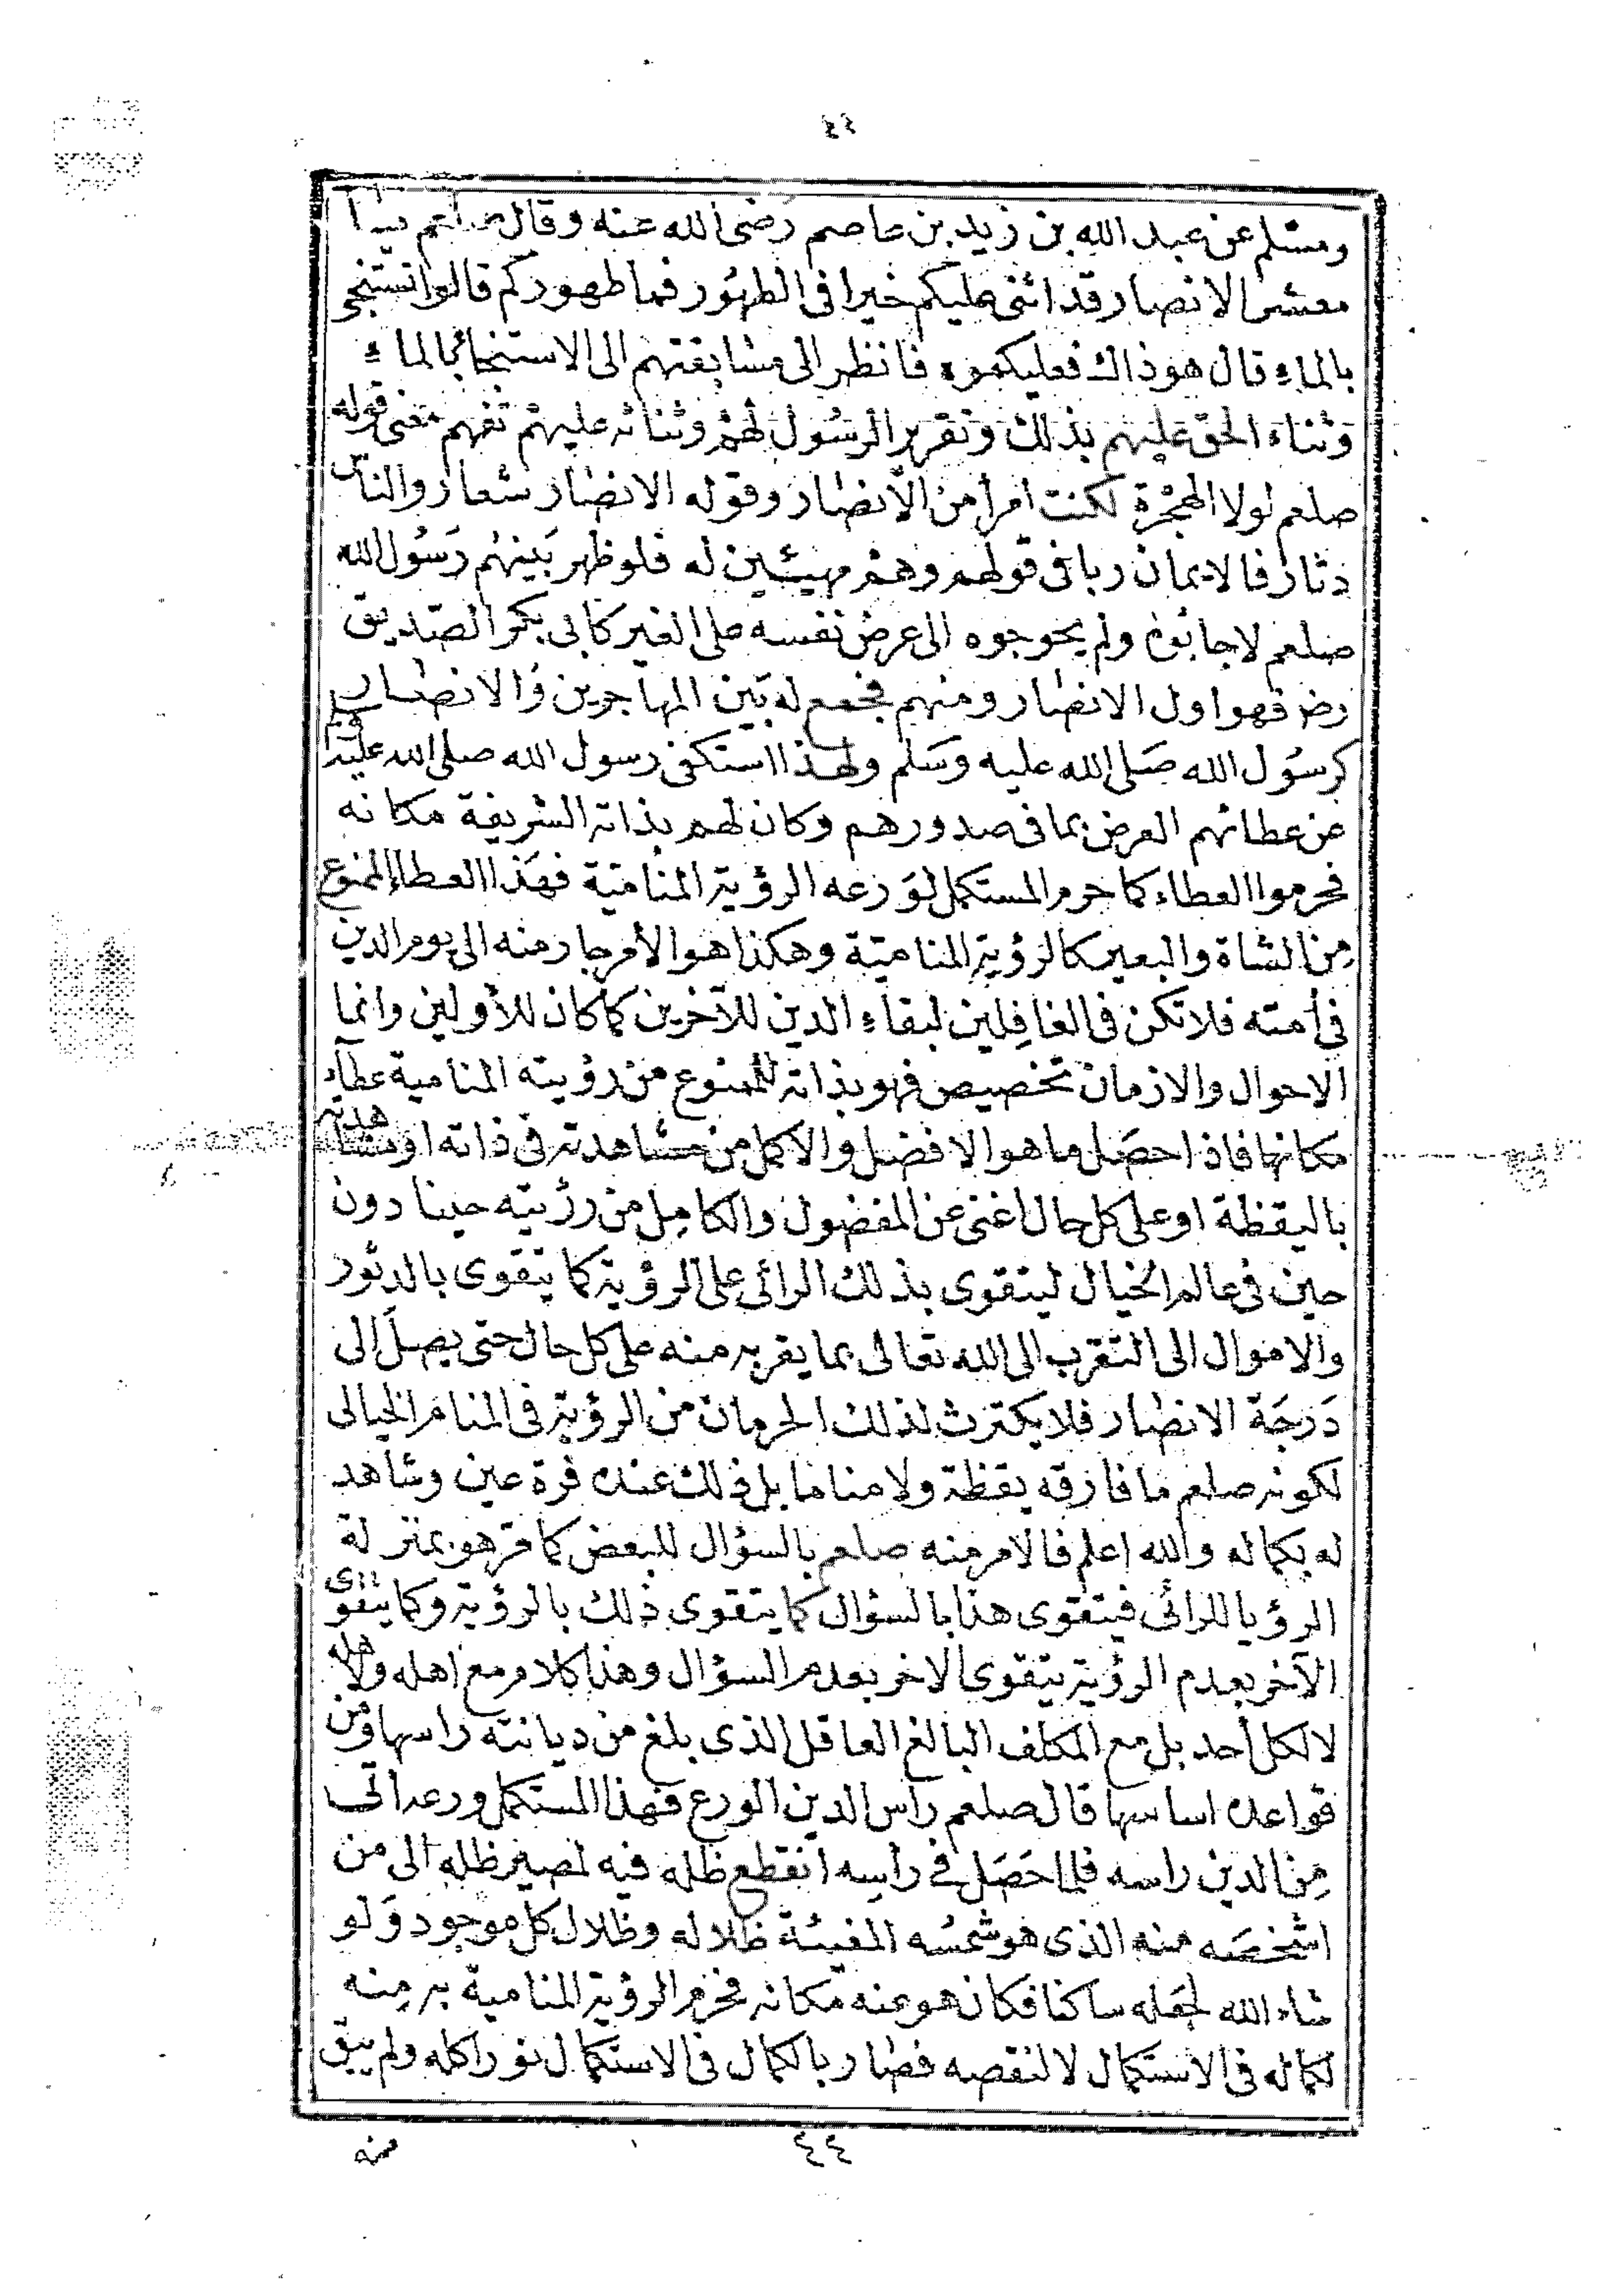 ٤٤
ومسلم عن عبد الله بن زيد بن عاصم رضى الله عنه وقال صلعم يا
معشر الانصار قد اثنى عليكم خيرا فى الطهور فما طهوركم قالوا نستنجى
بالماء قال هو ذاك فعليكموه فانظر الى مسابقتهم الى الاستنجاء بالماء
وثناء الحق عليهم بذلك وتقرير الرسول لهم وثنائه عليهم تفهم معنى قوله
صلعم لولا الهجرة لكنت امرأ من الانصار وقوله الانصار شعار والناس
دثار فالايمان ربا فى قولهم وهم مهيئين له فلو ظهر بينهم رسول الله
صلعم لاجابوه ولم يحوجوه الى عرض نفسه على الغير كابى بكر الصديق
رضى فهو اول الانصار ومنهم فجمع له بين المهاجرين والانصار
كرسول الله صلى الله عليه وسلم ولهذا استكفى رسول الله صلى الله عليه وسلم
عن عطائهم العرض بما فى صدورهم وكان لهم بذاته الشريفة مكانه
فحرموا العطاء كما حرم المستكمل لورعه الرؤية المنامية فهذا العطاء الممنوع
من الشاة والبعير كالرؤية المنامية وهكذا هو الأمر جار منه الى يوم الدين
فى أمته فلا تكن فى الغافلين لبقاء الدين للآخرين كما كان للأولين وانما
الاحوال والازمان تخصيص فهو بذاته للممنوع من رؤيته المنامية عطاء
مكانها فاذا حصل ما هو الافضل والاكمل من مشاهدته فى ذاته او مشاهدته
باليقظة او على كل حال اغنى عن المفضول والكامل من رؤيته حينا دون
حين فى عالم الخيال ليتقوى بذلك الرائى على الرؤية كما يتقوى بالدثور
والاموال الى التقرب الى الله تعالى بما يقربه منه على كل حال حتى يصل الى
درجة الانصار فلا يكترث لذلك الحرمان من الرؤية فى المنام الخيالى
لكونه صلعم ما فارقه يقظة ولا مناما بل ذلك عنده قرة عين وشاهد
له بكماله والله اعلم فالامر منه صلعم بالسؤال للبعض كما قر هو بمنزلة
الرؤيا للرائى فيتقوى هذا بالسؤال كما يتقوى ذلك بالرؤية وكما يتقوى
الآخر بعدم الرؤية يتقوى الاخر بعدم السؤال وهذا كلام مع اهله ولاهله
لا لكل أحد بل مع المكلف البالغ العاقل الذى بلغ من ديانته راسها ومن
قواعده اساسها قال صلعم رأس الدين الورع فهذا المستكمل ورعه اتى
من الدين راسه فلما حصل فى رأسه انقطع ظله فيه لمصير ظله الى من
اشخصه منه الذى هو شمسه المفيئة ظلاله وظلال كل موجود ولو
شاء الله لجعله ساكنا فكان هو عنه مكانه فحرم الرؤية المنامية به منه
لكماله فى الاستكمال لا لنقصه فصار بالكمال فى الاستكمال نورا كله ولم يبق
٤٤
منه